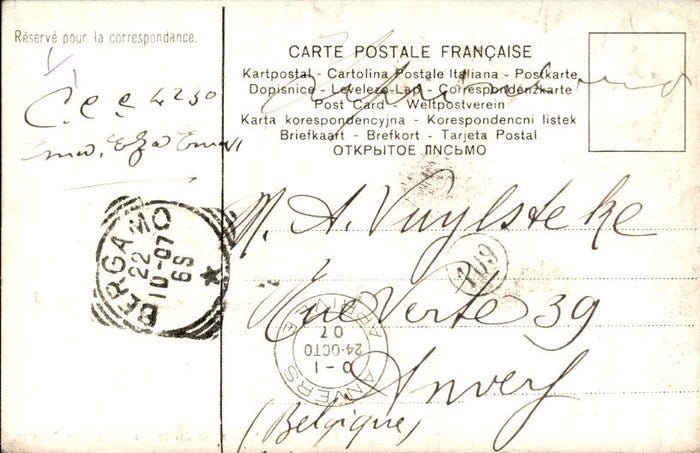 Réservé pour la correspondance.
CARTE POSTALE FRANÇAISE
Kartpostal - Cartolina Postale Italiana - Postkarte
Dopisnice - Levelezo-Lap - Correspondenzkarte
Post Card - Weltpostverein
Karta korespondencyjna - Korespondencni listek
Briefkaart - Brefkort - Tarjeta Postal
ОТКРЫТОЕ ПИСЬМО
C.C.C 4230
BERGAMO
22
10-07
6S
M. A. Vuylsteke
109
Rue Verte 39
ANVERS
0-1
24-OCTO
07
ARRIVÉE
Anvers
(Belgique)